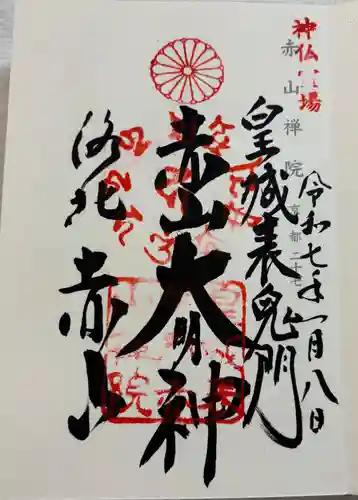 神仏霊場
赤山禅院 京都二十七
令和七年一月八日
皇城表鬼門
赤山大明神
洛北 赤山